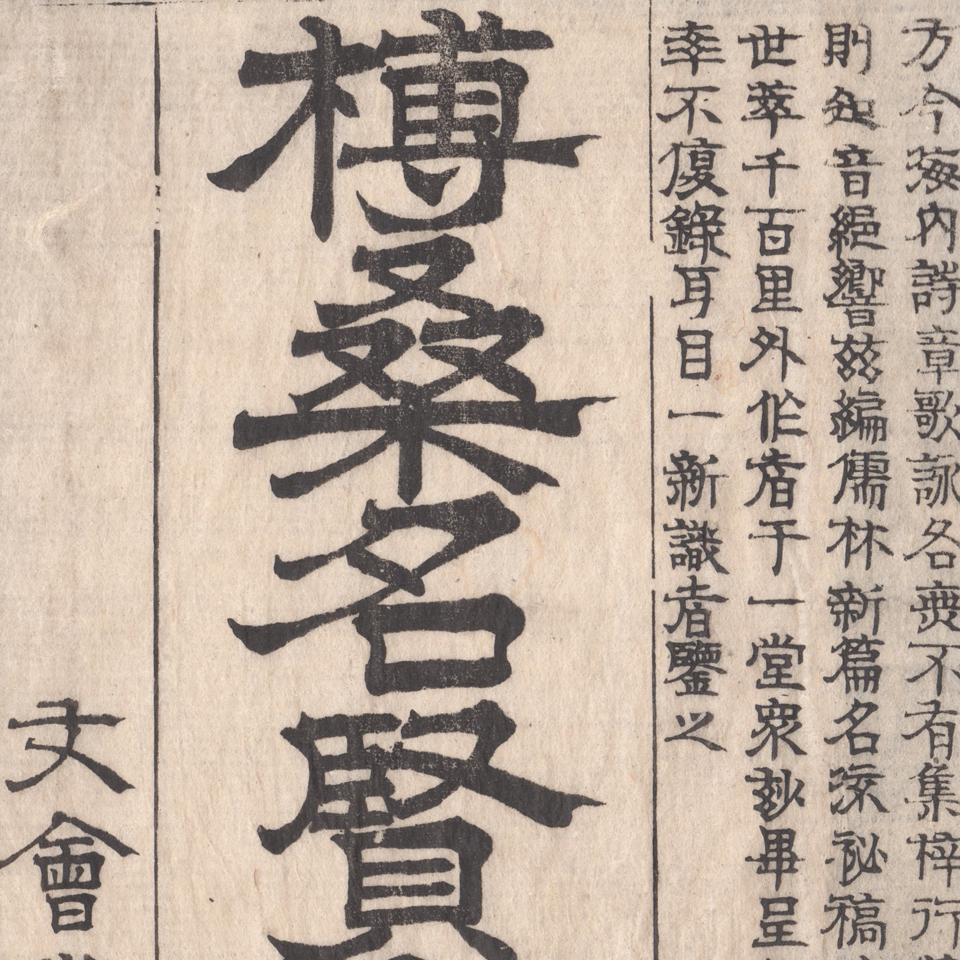 方今海内詩章歌詠各無不有集梓行
則知音絕響茲編儒林新篇名流祕稿
世萃千百里外作者于一堂衆妙畢呈
率不復錄耳目一新識者鑒之
榑桑名賢
文會